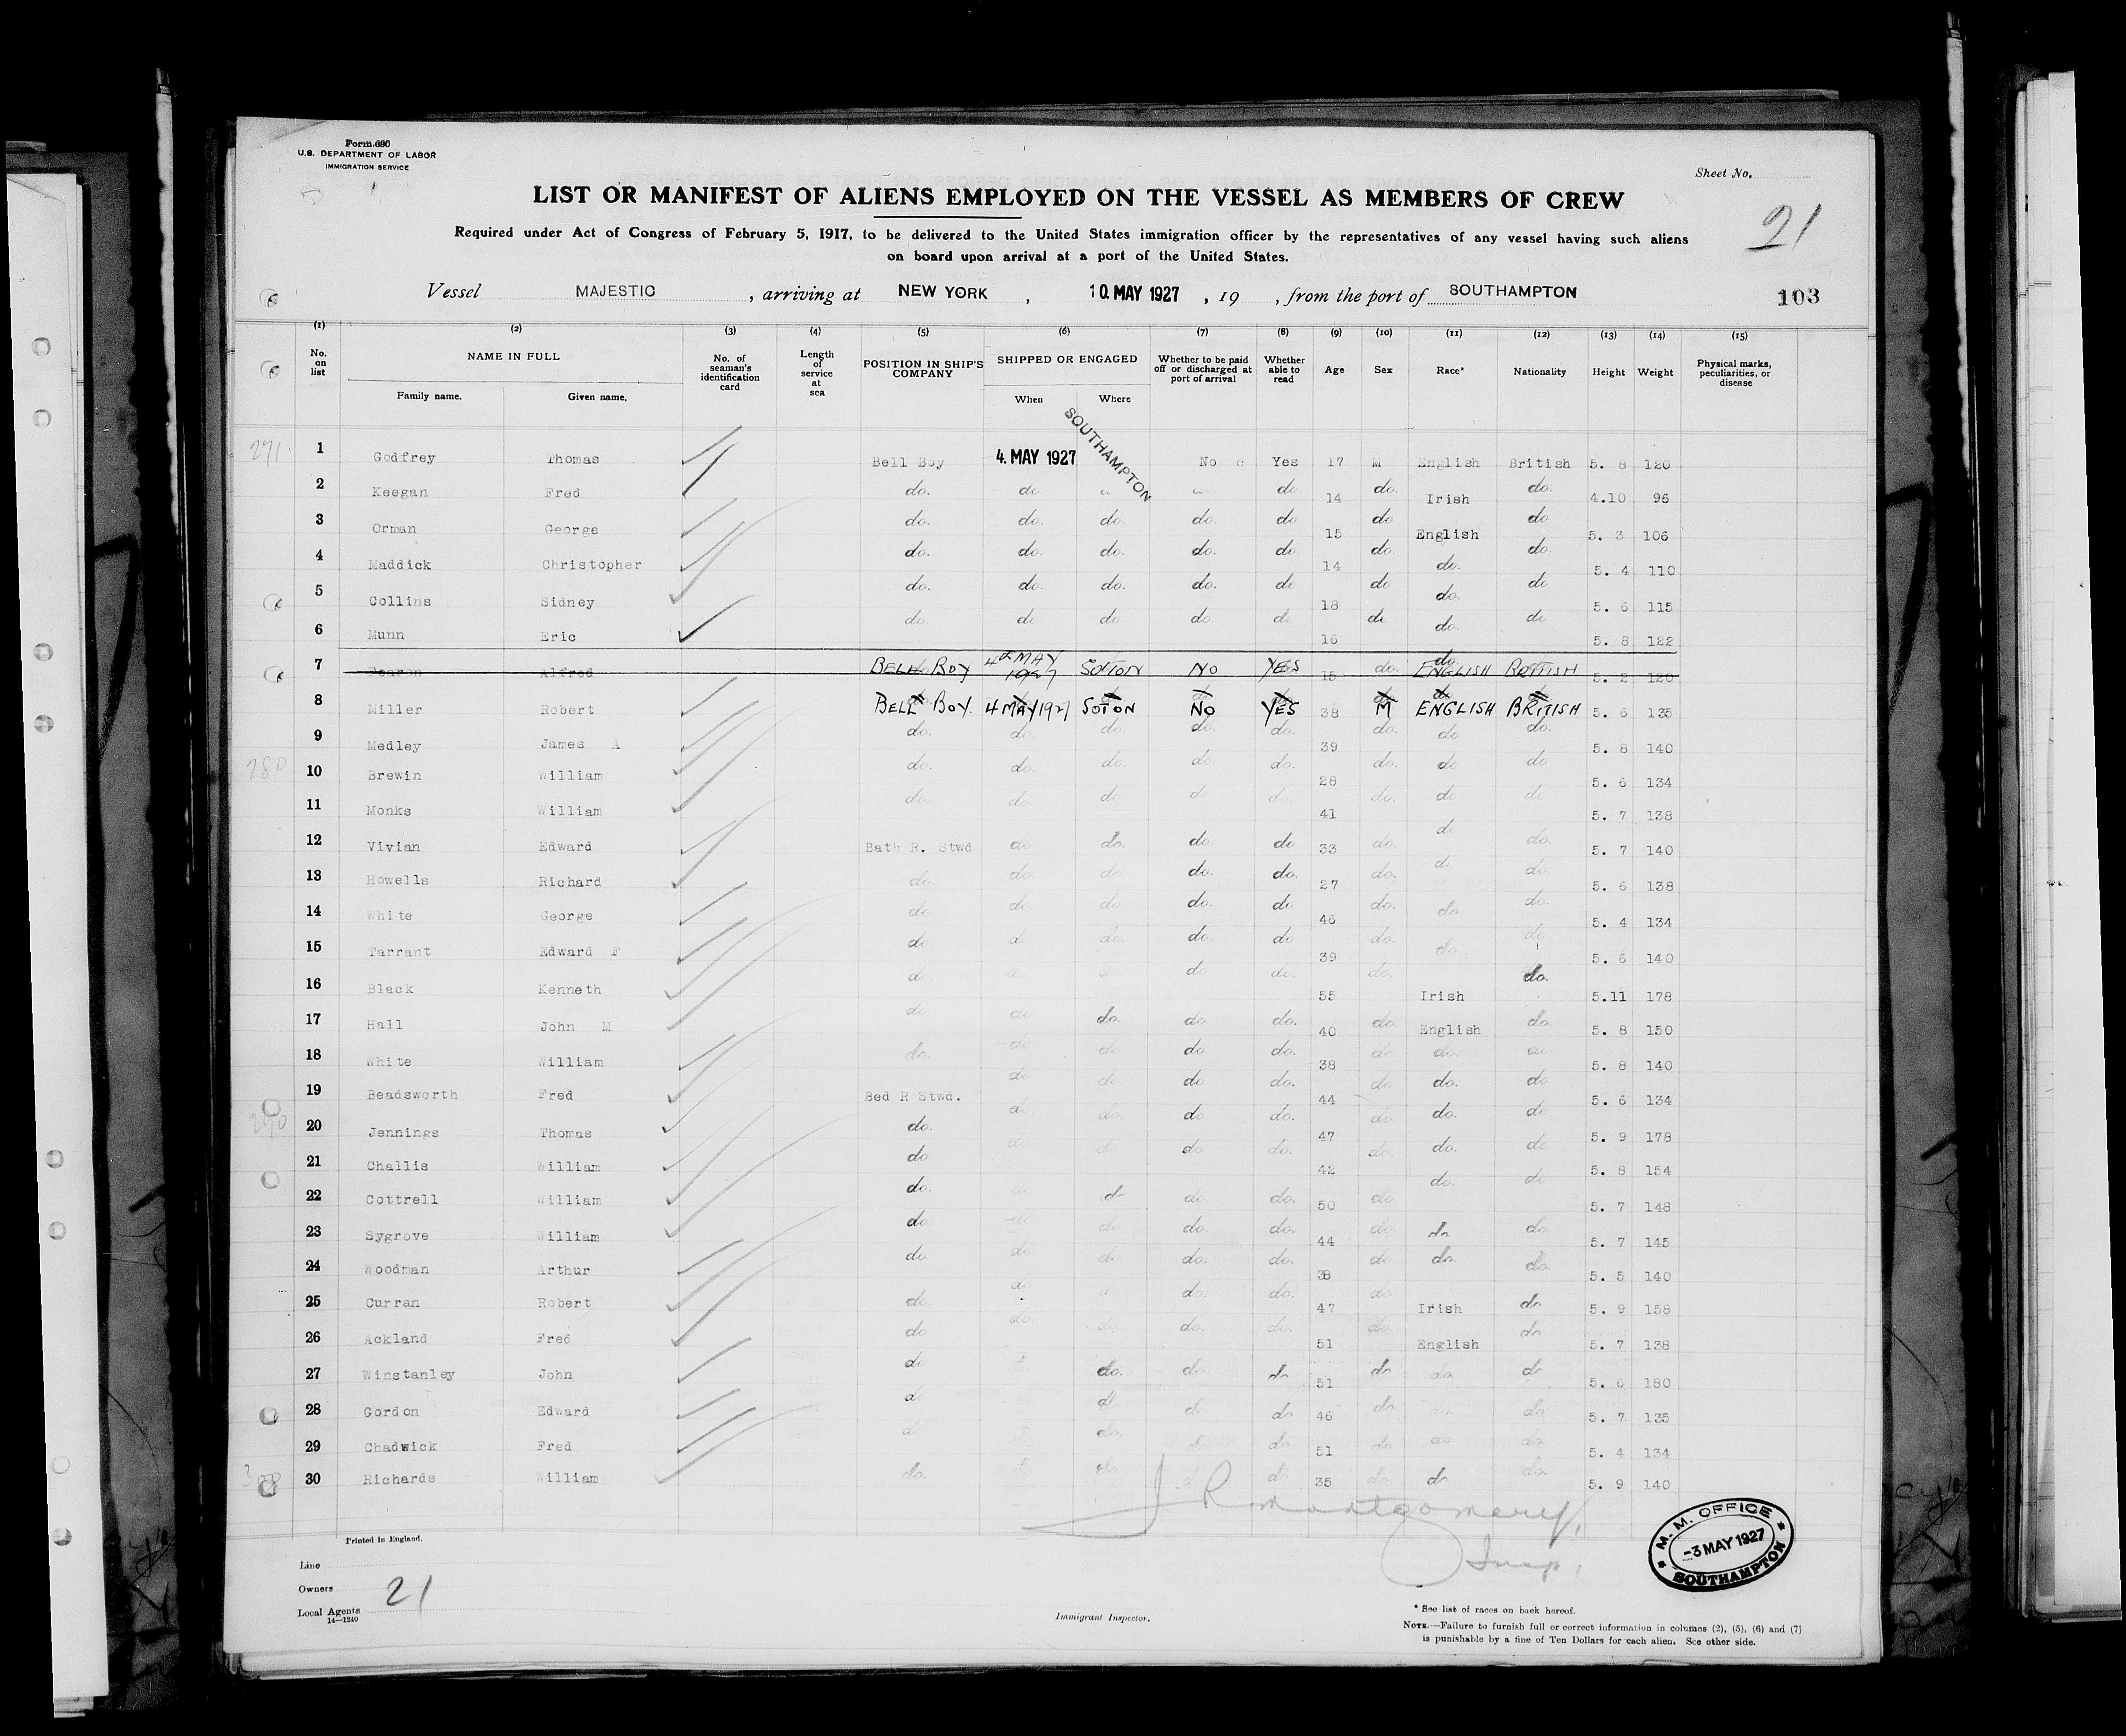 Form 680
U.S. DEPARTMENT OF LABOR
IMMIGRATION SERVICE
Sheet No.
LIST OR MANIFEST OF ALIENS EMPLOYED ON THE VESSEL AS MEMBERS OF CREW
21
Required under Act of Congress of February 5, 1917, to be delivered to the United States immigration officer by the representatives of any vessel having such aliens
on board upon arrival at a port of the United States.
Vessel MAJESTIC , arriving at NEW YORK , 10 MAY 1927 , 19 , from the port of SOUTHAMPTON
103
(1) (2) (3) (4) (5) (6) (7) (8) (9) (10) (11) (12) (13) (14) (15)
No. on list NAME IN FULL Family name. Given name. No. of seaman's identification card Length of service at sea POSITION IN SHIP'S COMPANY SHIPPED OR ENGAGED When Where Whether to be paid off or discharged at port of arrival Whether able to read Age Sex Race* Nationality Height Weight Physical marks, peculiarities, or disease
271 1 Godfrey Thomas Bell Boy 4. MAY 1927 SOUTHAMPTON No Yes 17 M English British 5. 8 120
2 Keegan Fred do. do do do. 14 do. Irish do. 4.10 96
3 Orman George do. do. do. do. do 15 do English do 5. 3 106
4 Maddick Christopher do. do. do. do. do 14 do. do. do. 5. 4 110
5 Collins Sidney do. do. do. do. do 18 do do. do 5. 6 115
6 Munn Eric do. do do do. do 16 do do. do 5. 8 122
7 Alfred BELL BOY 4th MAY 1927 SOTON NO YES 15 do. ENGLISH BRITISH 5. 2 120
8 Miller Robert BELL BOY. 4 MAY 1927 SOTON NO YES 38 M ENGLISH BRITISH 5. 6 135
9 Medley James A do. do. do. do. do. 39 do. do do. 5. 8 140
280 10 Brewin William do. do. do. do. do. 28 do. do do 5. 6 134
11 Monks William do. do. do do do 41 do. do do 5. 7 138
12 Vivian Edward Bath R. Stwd do. do. do. do 33 do. do do. 5. 7 140
13 Howells Richard do. do. do. do. do. 27 do. do do. 5. 6 138
14 White George do. do. do. do. do 46 do. do do. 5. 4 134
15 Tarrant Edward F do. do do. do. do 39 do. do. do 5. 6 140
16 Black Kenneth do do do. 55 do. Irish do. 5.11 178
17 Hall John M do do do. do do. 40 do English do. 5. 8 150
18 White William do. do. do. do do. 38 do do. do 5. 8 140
19 Beadsworth Fred Bed R Stwd. do do. do do. 44 do do. do 5. 6 134
290 20 Jennings Thomas do. do. do. do. do. 47 do. do. do 5. 9 178
21 Challis William do do do. do. do. 42 do. do. do 5. 8 154
22 Cottrell William do. do do do. do. 50 do do. do 5. 7 148
23 Sygrove William do do do. do. do. 44 do. do. do. 5. 7 145
24 Woodman Arthur do do do. do. do. 38 do. do. do. 5. 5 140
25 Curran Robert do. do do. do. 47 do Irish do 5. 9 158
26 Ackland Fred do do. do. do. 51 do. English do 5. 7 138
27 Winstanley John do do. do. do 51 do do do 5. 6 180
28 Gordon Edward do do do do 46 do do. 5. 7 135
29 Chadwick Fred do do. do do 51 do do do. 5. 4 134
30 Richards William do. do do do 35 do do do. 5. 9 140
J R Montgomery,
Insp.
M. M. OFFICE
-3 MAY 1927
SOUTHAMPTON
Printed in England.
Line
Owners 21
Local Agents
14-1240
Immigrant Inspector.
* See list of races on back hereof.
NOTE.—Failure to furnish full or correct information in columns (2), (5), (6) and (7)
is punishable by a fine of Ten Dollars for each alien. See other side.